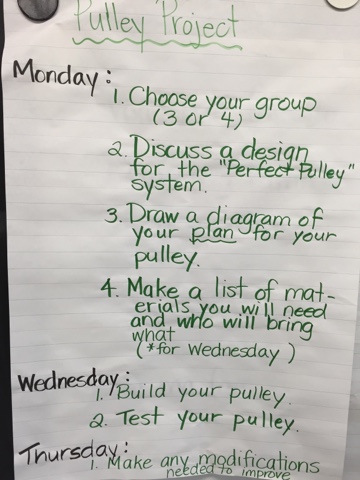 Pulley Project
Monday:
1. Choose your group
(3 or 4)
2. Discuss a design
for the "Perfect Pulley"
system.
3. Draw a diagram of
your plan for your
pulley.
4. Make a list of mat-
erials you will need
and who will bring
what
(*for Wednesday)
Wednesday:
1. Build your pulley.
2. Test your pulley.
Thursday:
1. Make any modifications
needed to improve